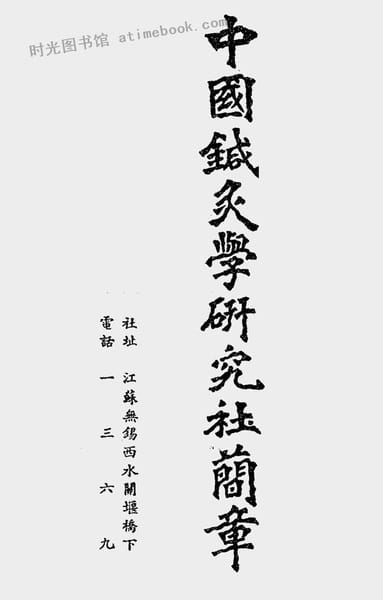 时光图书馆 atimebook.com
中國鍼灸學硏究社蕳章
社址 江蘇無錫西水關堰橋下
電話 一三六九